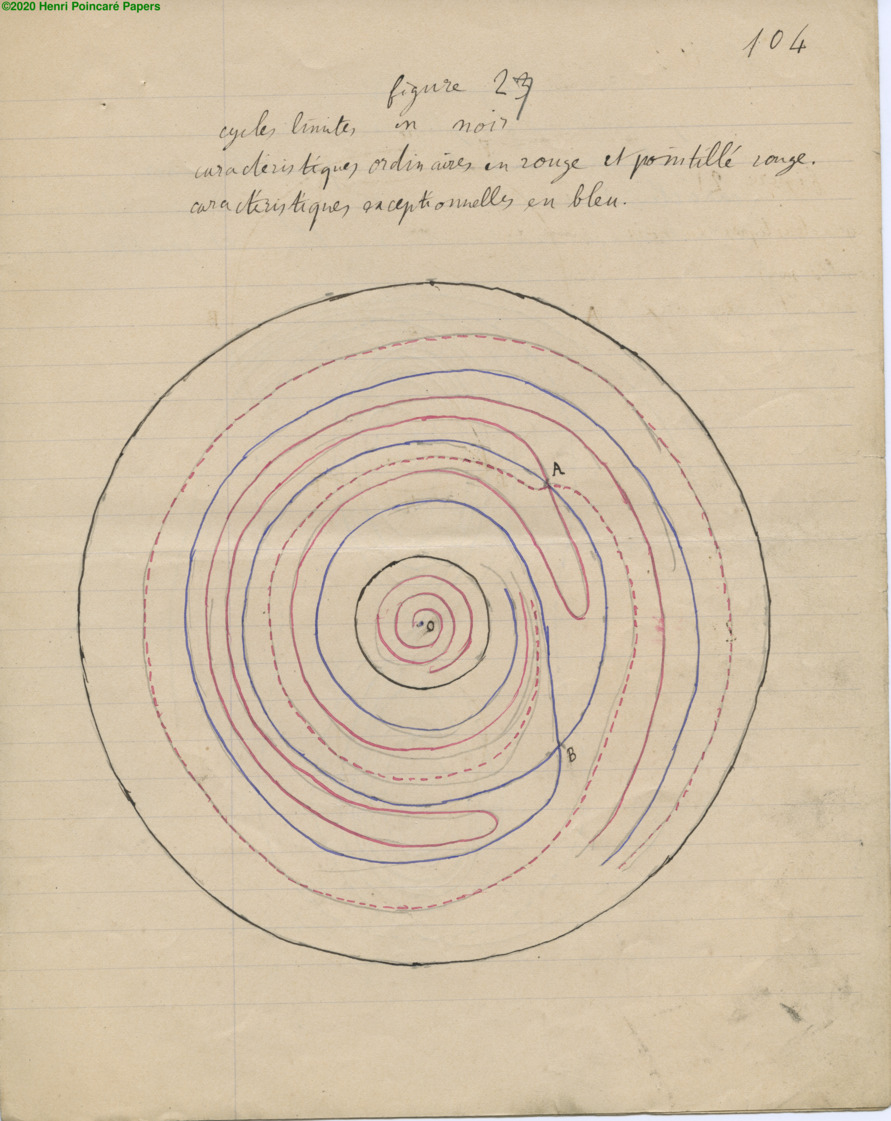 ©2020 Henri Poincaré Papers
104
figure 27
cycles limites en noir
caractéristiques ordinaires en rouge et pointillé rouge.
caractéristiques exceptionnelles en bleu.
A
O
B